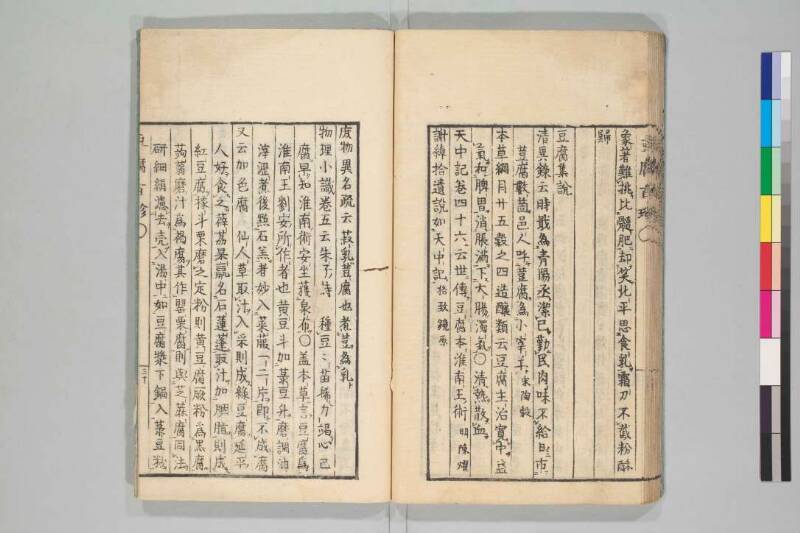 象著難挑比髓肥却笑北平思食乳霜刀不截粉酥
歸
豆腐集說
清異錄云時戢為青陽丞潔己勤民肉味不給日市
豆腐數箇邑人呼豆腐為小宰羊宋陶穀
本草綱目廿五穀之四造釀類云豆腐主治寬中益
氣和脾胃消脹滿下大腸濁氣〇清熱散血
天中記卷四十六云世傳豆腐本淮南王術明陳燿
謝綽拾遺說如天中記格致鏡原
庶物異名疏云菽乳荳腐也煮荳為乳
物理小識卷五云朱子詩種豆〻苗稀力竭心已
腐早知淮南術安坐獲泉布〇蓋本草言豆腐為
淮南王劉安所作者也黄豆斗加菉豆升磨調油
滓溫煮後㸃石羔者妙入菜菔一二片即不成腐
又云如色腐仙人草取汁入采則成綠豆腐延平
人好食之薜荔果羸名石蓮蓬取汁加胭脂則成
紅豆腐橡斗栗磨之定粉則黄豆腐蕨粉為黒腐
蒟蒻磨汁為褐腐其作罌粟腐則與芝蔴腐同法
研細絹濾去壳入湯中如豆腐漿下鍋入菉豆粉
豆腐百珍
三十